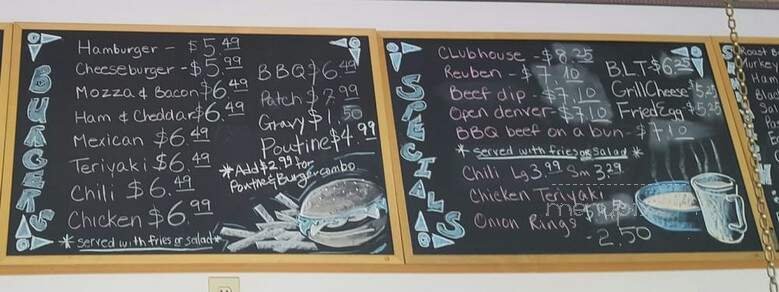 BURGERS
Hamburger - $5.49
Cheeseburger - $5.99
Mozza & Bacon $6.49
Ham & Cheddar $6.49
Mexican $6.49
Teriyaki $6.49
Chili $6.49
Chicken $6.99
* served with fries or salad *
BBQ $6.49
Patch $7.99
Gravy $1.50
Poutine $4.99
* Add $2.99 for
Poutine & Burger combo
SPECIALS
Clubhouse - $8.25
Reuben - $7.10
Beef dip - $7.10
Open denver - $7.10
BBQ beef on a bun - $7.10
* served with fries or salad *
Chili Lg 3.99 Sm 3.29
Chicken Teriyaki
Onion Rings
2.50
BLT $6.25
Grill Cheese $5.25
Fried Egg $5.25
Roast B
Turkey
Ham